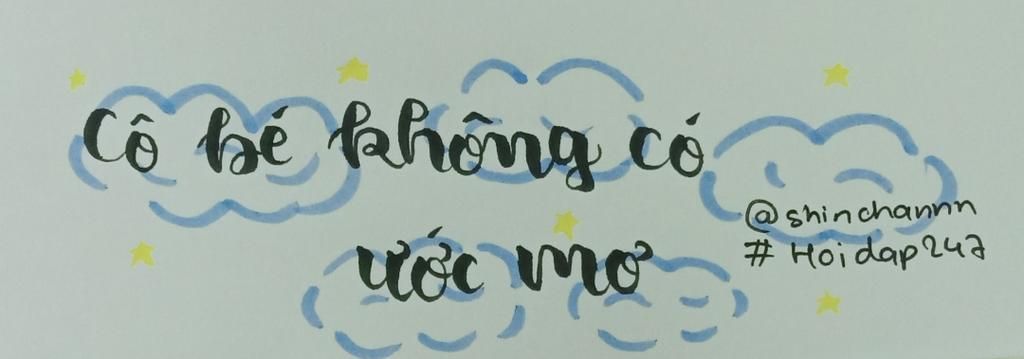 Cô bé không có
ước mơ
@shinchannn
#Hoidap247